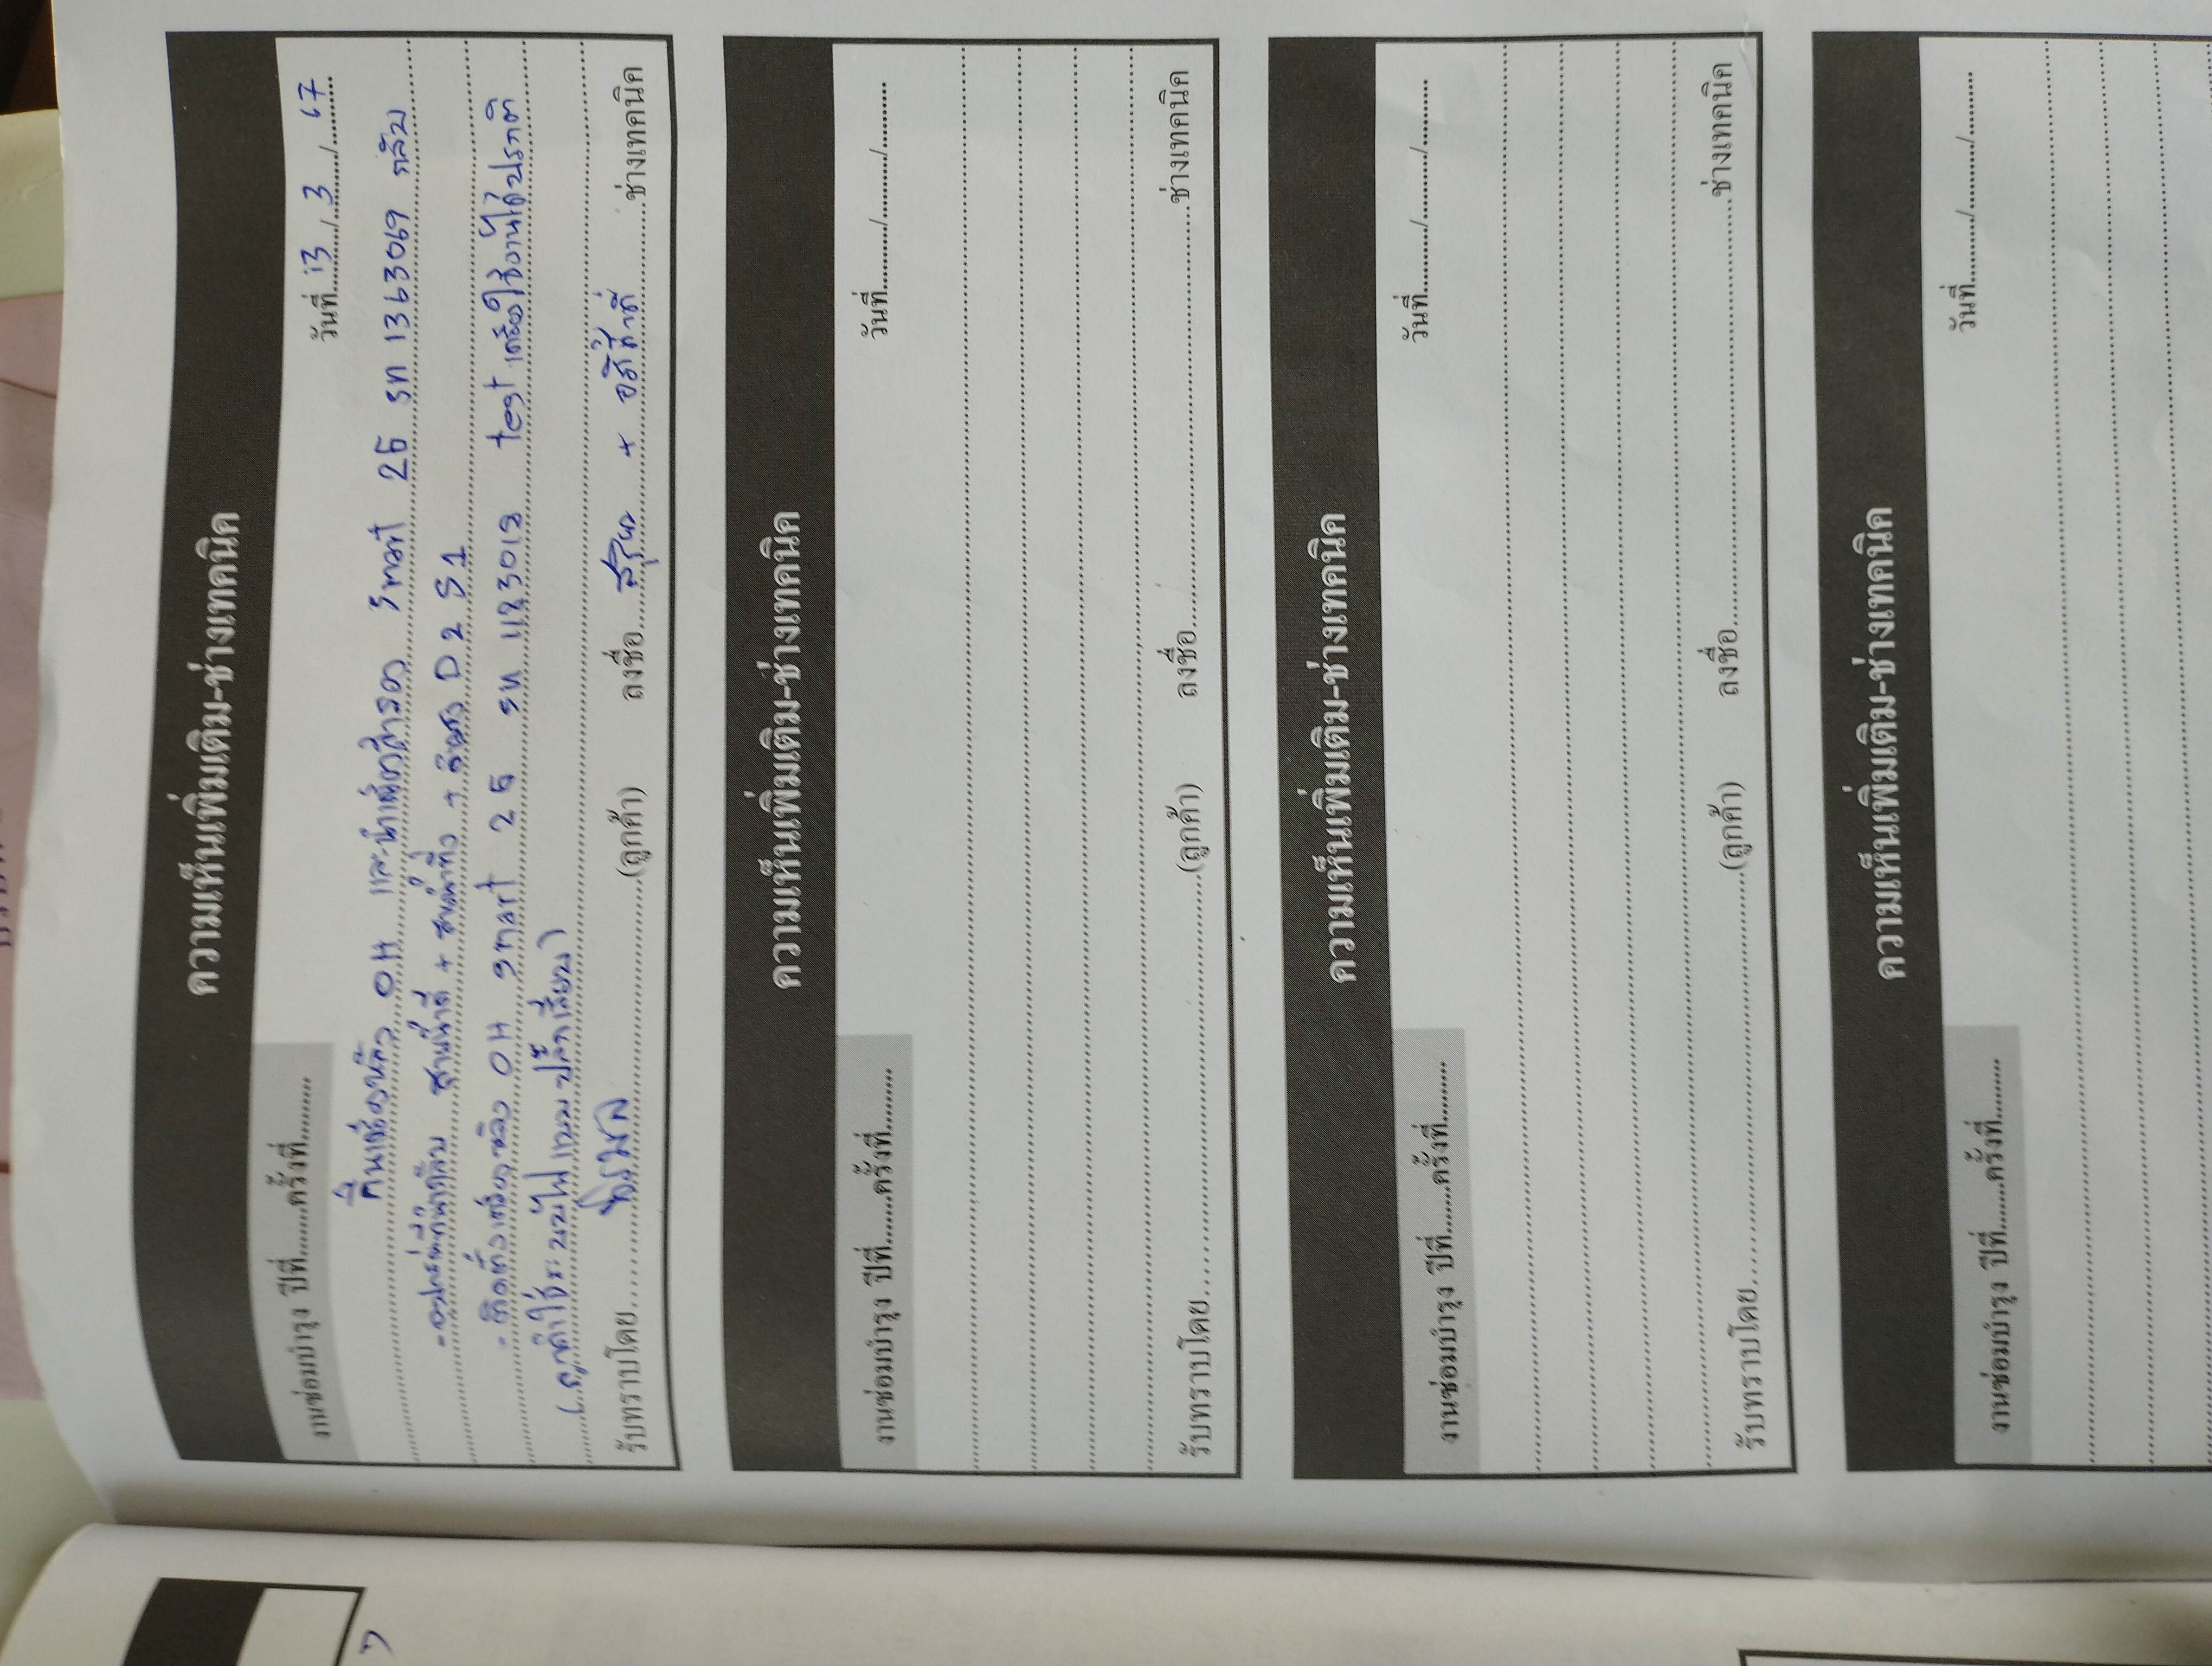 ความเห็นเพิ่มเติม-ช่างเทคนิค
งานซ่อมบำรุง ปีที่.......ครั้งที่.......... วันที่ 13 / 3 / 67
คืนเครื่องหลัง OH และนำเครื่องสำรอง Smart 25 sn 1363069 กลับ
- อุปกรณ์ที่นำกลับ สายน้ำดี + สายน้ำทิ้ง + D 2 S 1
- ติดตั้งเครื่องหลัง OH smart 25 sn 1183018 test เครื่องใช้งานได้ปรกติ
(ลูกค้าใช้ระบบไฟแบบปลั๊กเสียบ)
รับทราบโดย..........(ลูกค้า) ลงชื่อ.......... + ..........ช่างเทคนิค
ความเห็นเพิ่มเติม-ช่างเทคนิค
งานซ่อมบำรุง ปีที่.......ครั้งที่.......... วันที่........../........../..........
รับทราบโดย..........(ลูกค้า) ลงชื่อ..........ช่างเทคนิค
ความเห็นเพิ่มเติม-ช่างเทคนิค
งานซ่อมบำรุง ปีที่.......ครั้งที่.......... วันที่........../........../..........
รับทราบโดย..........(ลูกค้า) ลงชื่อ..........ช่างเทคนิค
ความเห็นเพิ่มเติม-ช่างเทคนิค
งานซ่อมบำรุง ปีที่.......ครั้งที่.......... วันที่........../........../..........